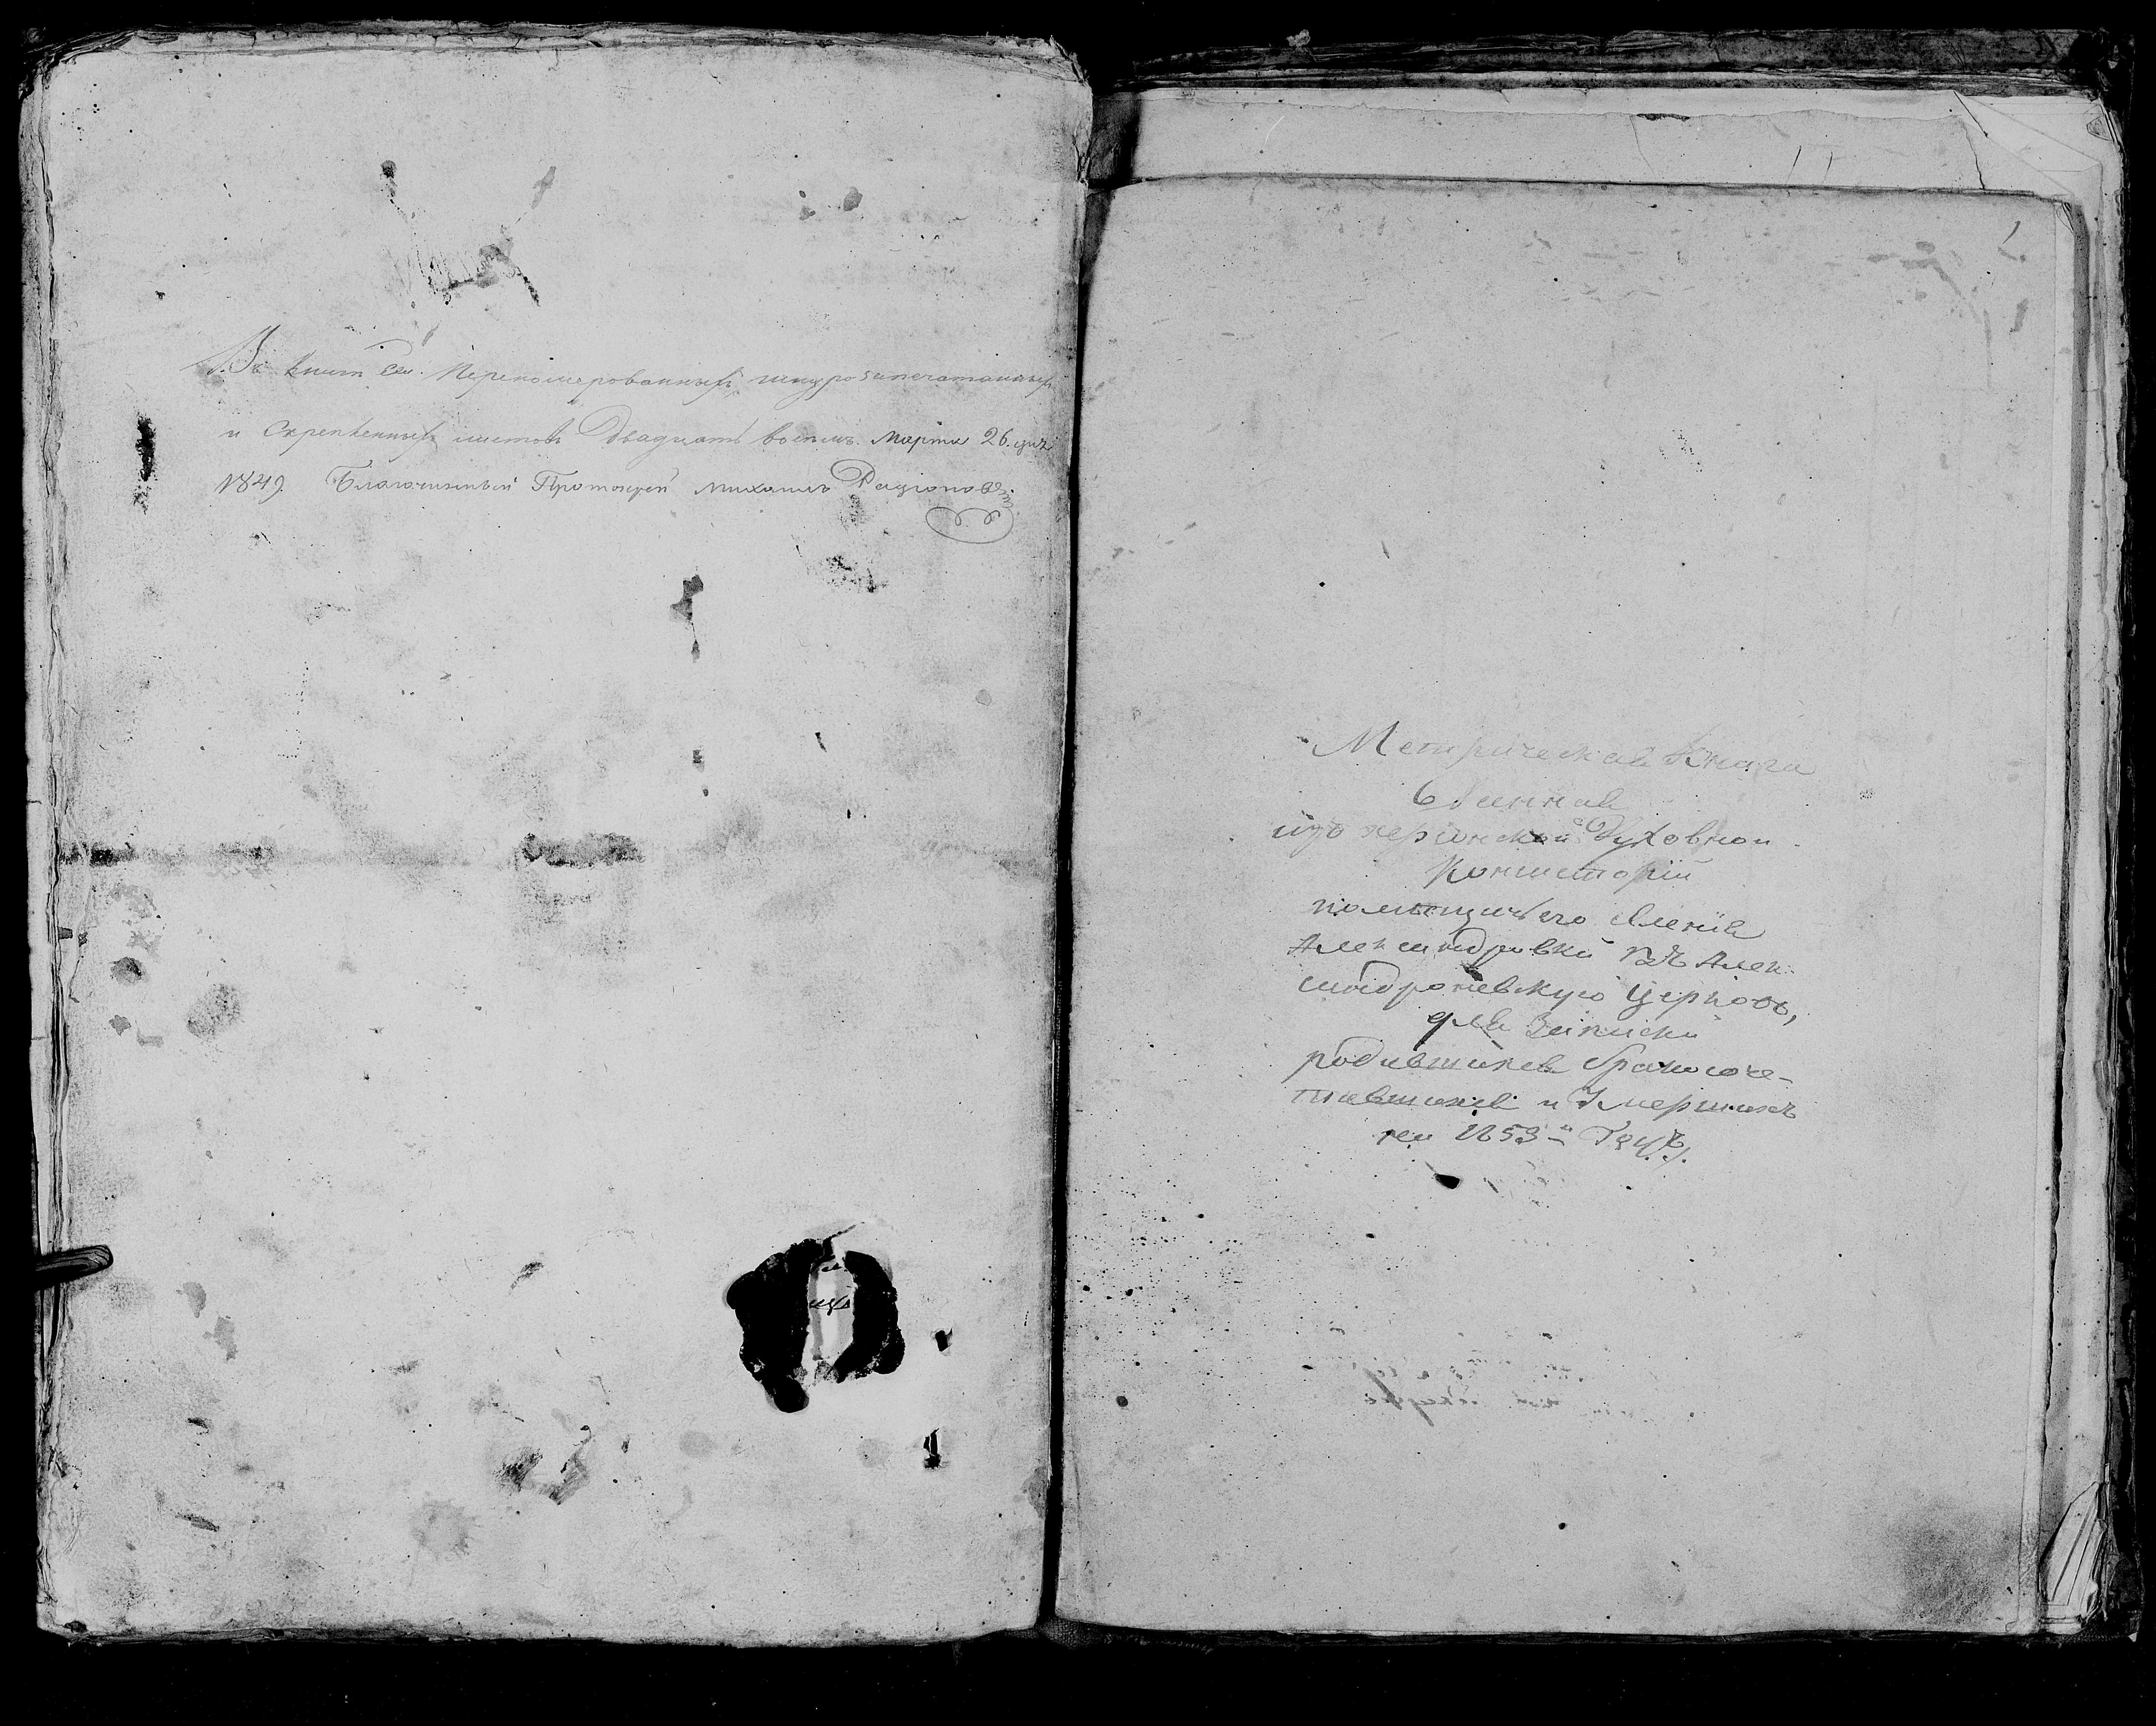 Въ книгѣ сей перенумерованныхъ шнурозапечатанныхъ
и скрепленныхъ листовъ двадцать восемь. Марта 26. дня
1849. Благочинный Протоиерей Михаилъ Радионовъ
Метрическая Книга
данная
изъ херсонской Духовной
Консисторіи
помѣщичьего
Александровки въ Алек
сандроневскую Церковь,
для Записки
родившихся бракосоче-
тавшихся и Умершихъ
на 1853-й Годъ.